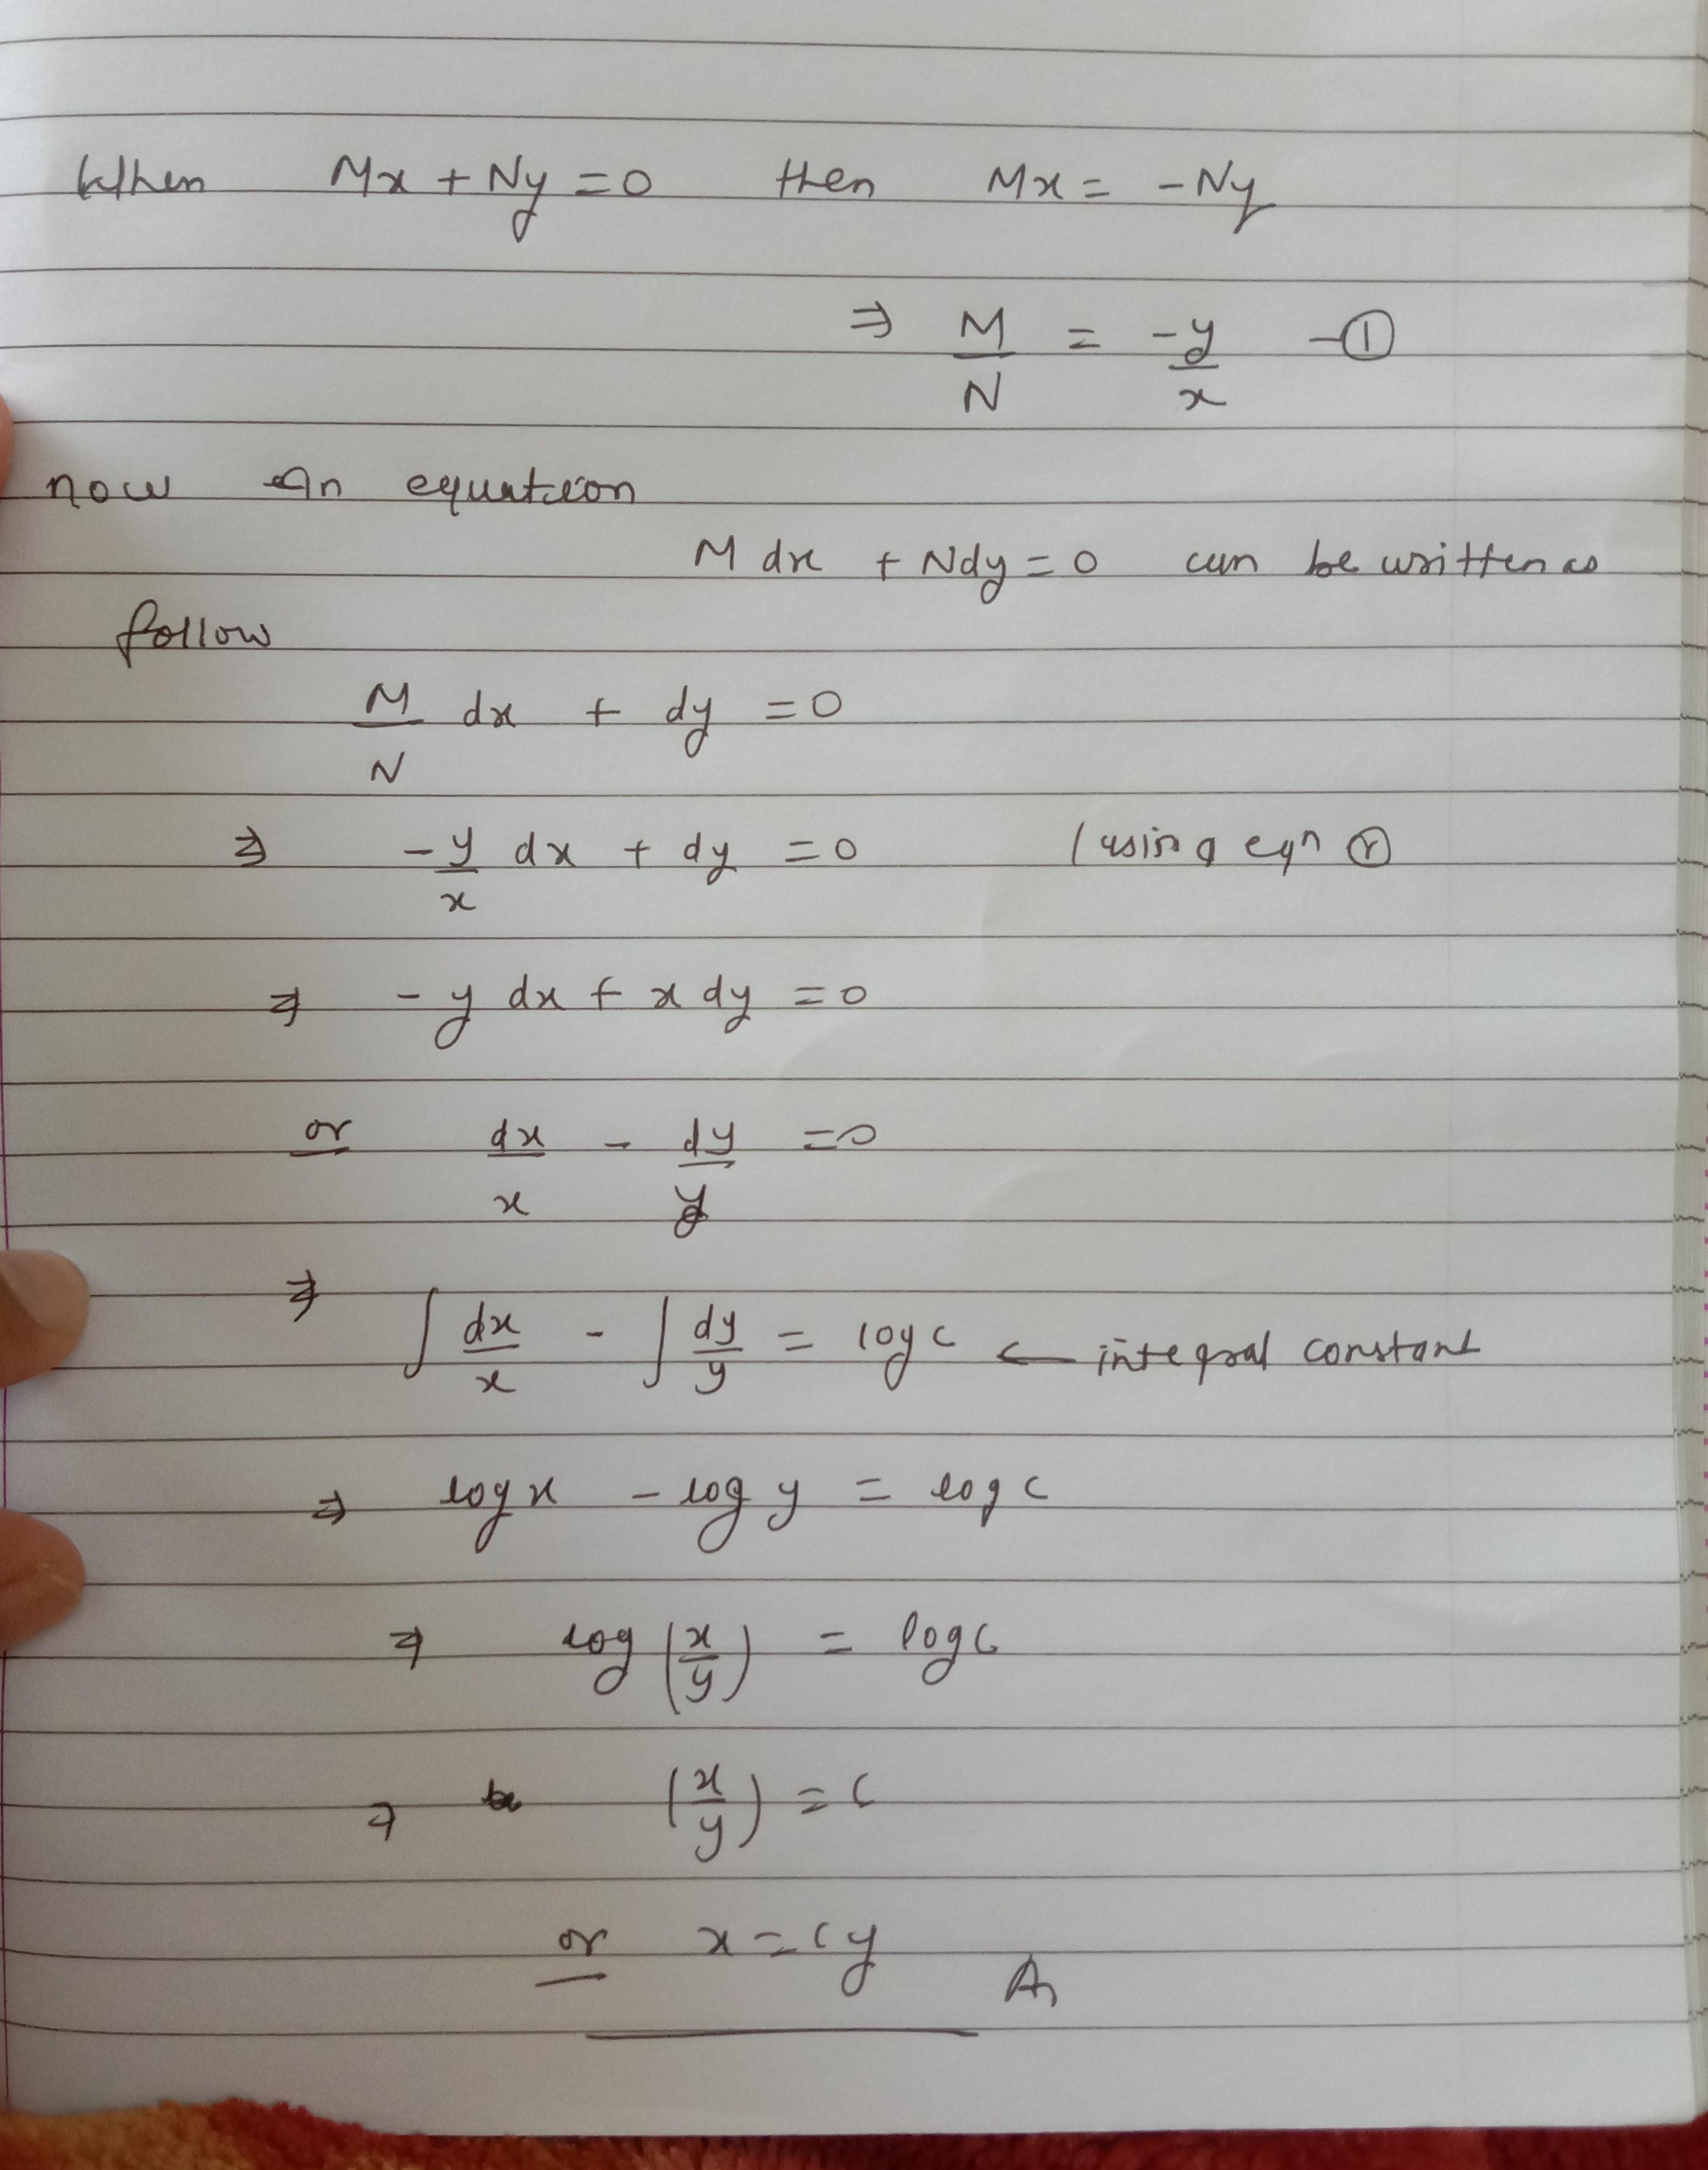 When Mx + Ny = 0 then Mx = -Ny
⇒ M/N = -y/x -①
now An equation
M dx + Ndy = 0 can be written as
follow
M/N dx + dy = 0
⇒ -y/x dx + dy = 0 (using eqn ①
⇒ -y dx + x dy = 0
or dx/x - dy/y = 0
⇒ ∫ dx/x - ∫ dy/y = log c ← integral constant
⇒ log x - log y = log c
⇒ log (x/y) = log c
⇒ (x/y) = c
or x = cy